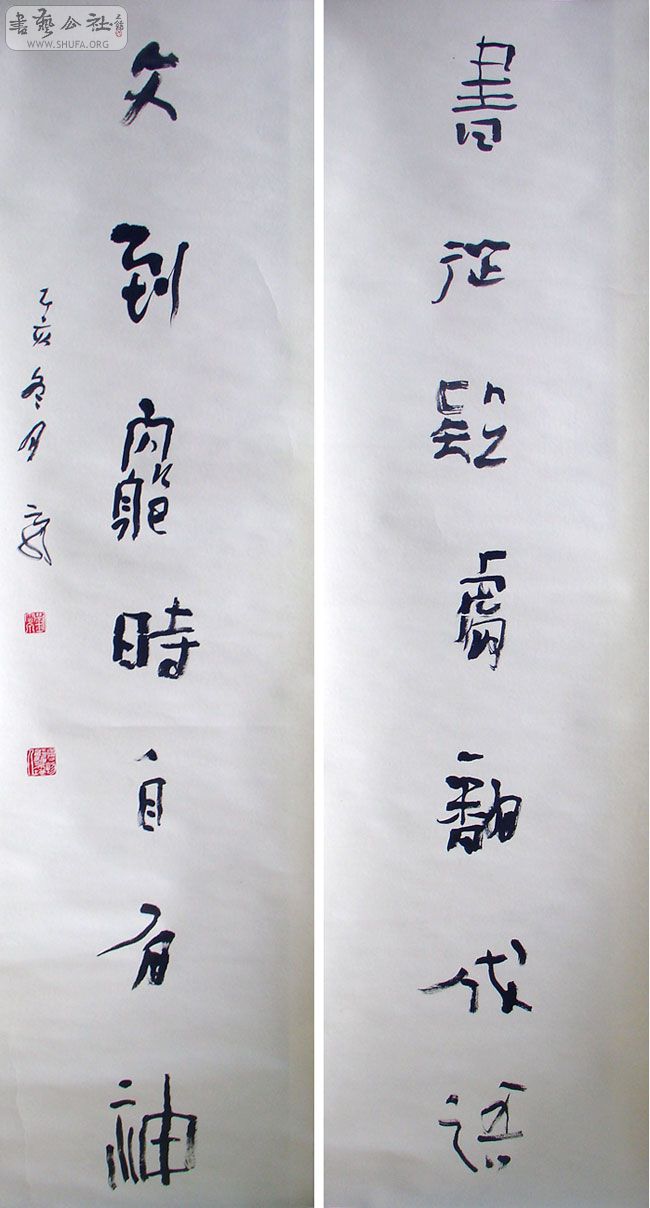 書藝公社
WWW.SHUFA.ORG
書從疑處翻成悟
文到窮時自有神
乙亥冬月